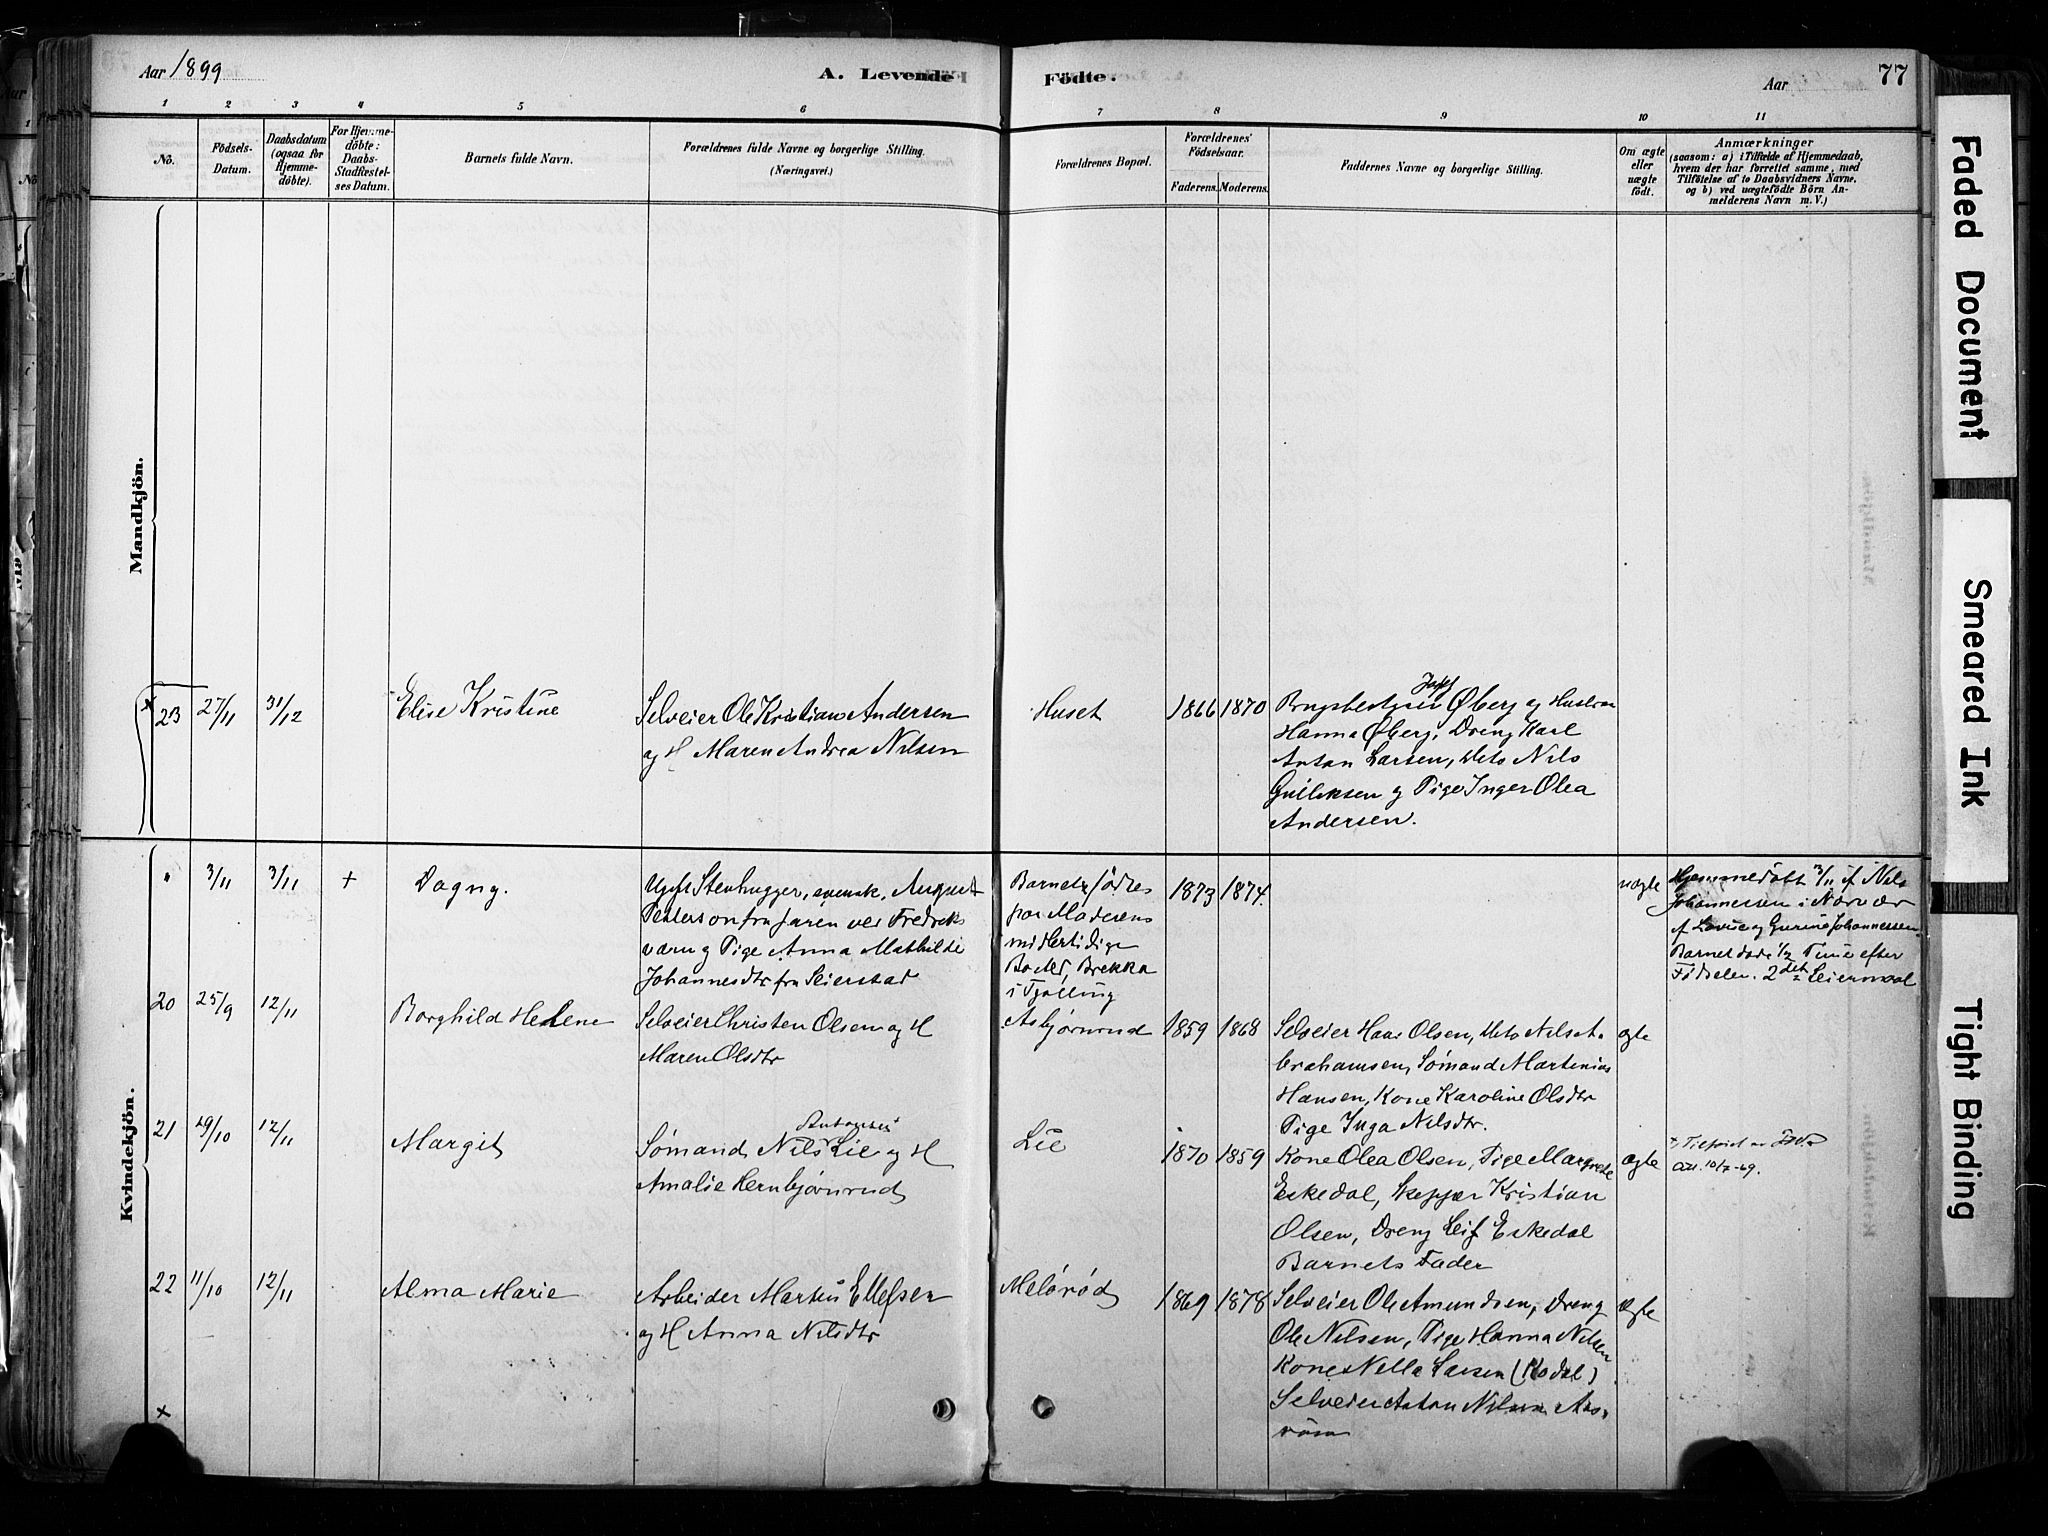 Aar 1899
A. Levende
Födte.
Aar
77
1 2 3 4 5 6 7 8 9 10 11
No.
Födsels-
Datum.
Daabsdatum
(ogsaa for
Hjemme-
döbte).
For Hjemme-
döbte:
Daabs-
Stadfæstel-
ses Datum.
Barnets fulde Navn.
Forældrenes fulde Navne og borgerlige Stilling.
(Næringsvei.)
Forældrenes Bopæl.
Forældrenes'
Födselsaar.
Faderens. Moderens.
Faddernes Navne og borgerlige Stilling.
Om ægte
eller
uægte
födt.
Anmærkninger
(saasom: a) i Tilfælde af Hjemmedaab,
hvem der har forrettet samme, med
Tilföielse af to Daabsvidners Navne,
og b) ved uægtefödte Börn An-
melderens Navn m. V.)
Mandkjön.
x
23 27/11 31/12
Elise Kristine
Selveier Ole Kristian Andersen
og H Maren Andrea Nilsen
Huset
1866 1870
Josef
Brugsbestyrer Øberg og Hustru
Hanna Øberg, Dreng Karl
Anton Larsen, dito Nils
Gulleksen og Pige Inger Olea
Andersen.
Kvindekjön.
3/11 3/11 +
Dagny.
Ugift Stenhugger, svensk, August
Petterson fra Jaren ved Fredriks
værn og Pige Anna Mathilde
Johannesdtr fra Seierstad
Barnet fødtes
paa Moderens
midlertidige
Bosted, Brekka
i Tjølling
1873 1874.
uægte
Hjemmedøbt 3/11 af Nils
Johannessen i Nærvær
af Lovise og Gurine Johannessen.
Barnet døde 1/2 Time efter
Fødselen. 2det Leiermaal
20 25/9 12/11
Borghild Helene
Selveier Christen Olsen og H
Maren Olsdtr
Asbjørnrud
1859 1868
Selveier Hans Olsen, dito Nils A-
brahamsen, Sømand Martinius
Hansen, Kone Karoline Olsdtr
Pige Inga Nilsdtr.
ægte
21 29/10 12/11
Margit
Antonius
Sømand Nils Lie og H
Amalie Hernbjørnrud
Lie
1870 1859
Kone Olea Olsen, Pige Margrete
Eskedal, Skipper Kristian
Olsen, Dreng Leif Eskedal
Barnets Fader
ægte
Tilføiet
10/7-69.
22 11/10 12/11
Alma Marie
Arbeider Martin Ellefsen
og H Anna Nilsdtr
Melörød
1869 1878
Selveier Ole Amundsen, Dreng
Ole Nilsen, Pige Hanna Nilsen
Kone Nella Larsen (Kodal)
Selveier Anton Nilsen Aas-
rum
ægte
x
Faded Document
Smeared Ink
Tight Binding